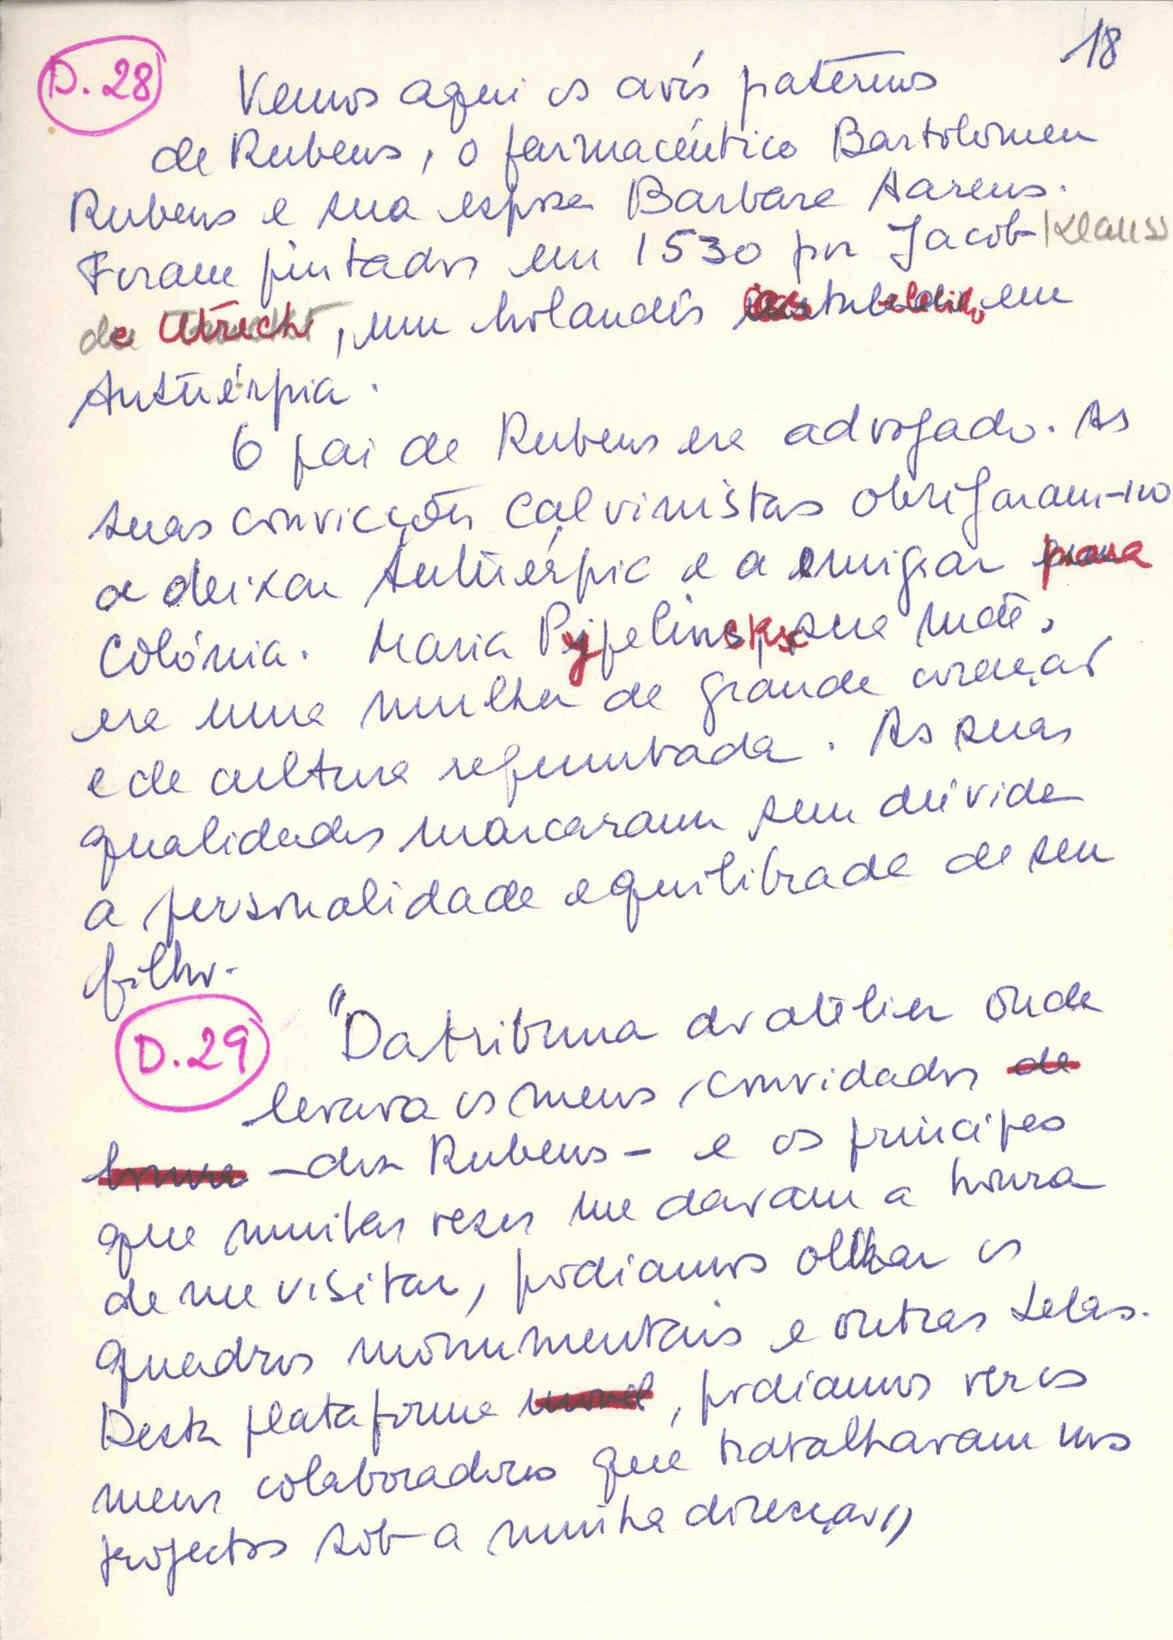 18
D. 28
Vemos aqui os avós paternos
de Rubens, o farmacêutico Bartolomeu
Rubens e sua esposa Barbara Aarens.
Foram pintados em 1530 por Jacob Klauss
de Utrecht, um holandês estabelecido em
Antuérpia.
O pai de Rubens era advogado. As
suas convicções calvinistas obrigaram-no
a deixar Antuérpia e a emigrar para
Colónia. Maria Pypelinckx, sua mãe,
era uma mulher de grande coração
e de cultura requintada. As suas
qualidades marcaram sem dúvida
a personalidade equilibrada de seu
filho.
D. 29
"Da tribuna do atelier onde
levava os meus convidados de
- diz Rubens - e os príncipes
que muitas vezes me davam a honra
de me visitar, podíamos olhar os
quadros monumentais e outras telas.
Desta plataforma, podíamos ver os
meus colaboradores que trabalhavam nos
projectos sob a minha direcção"